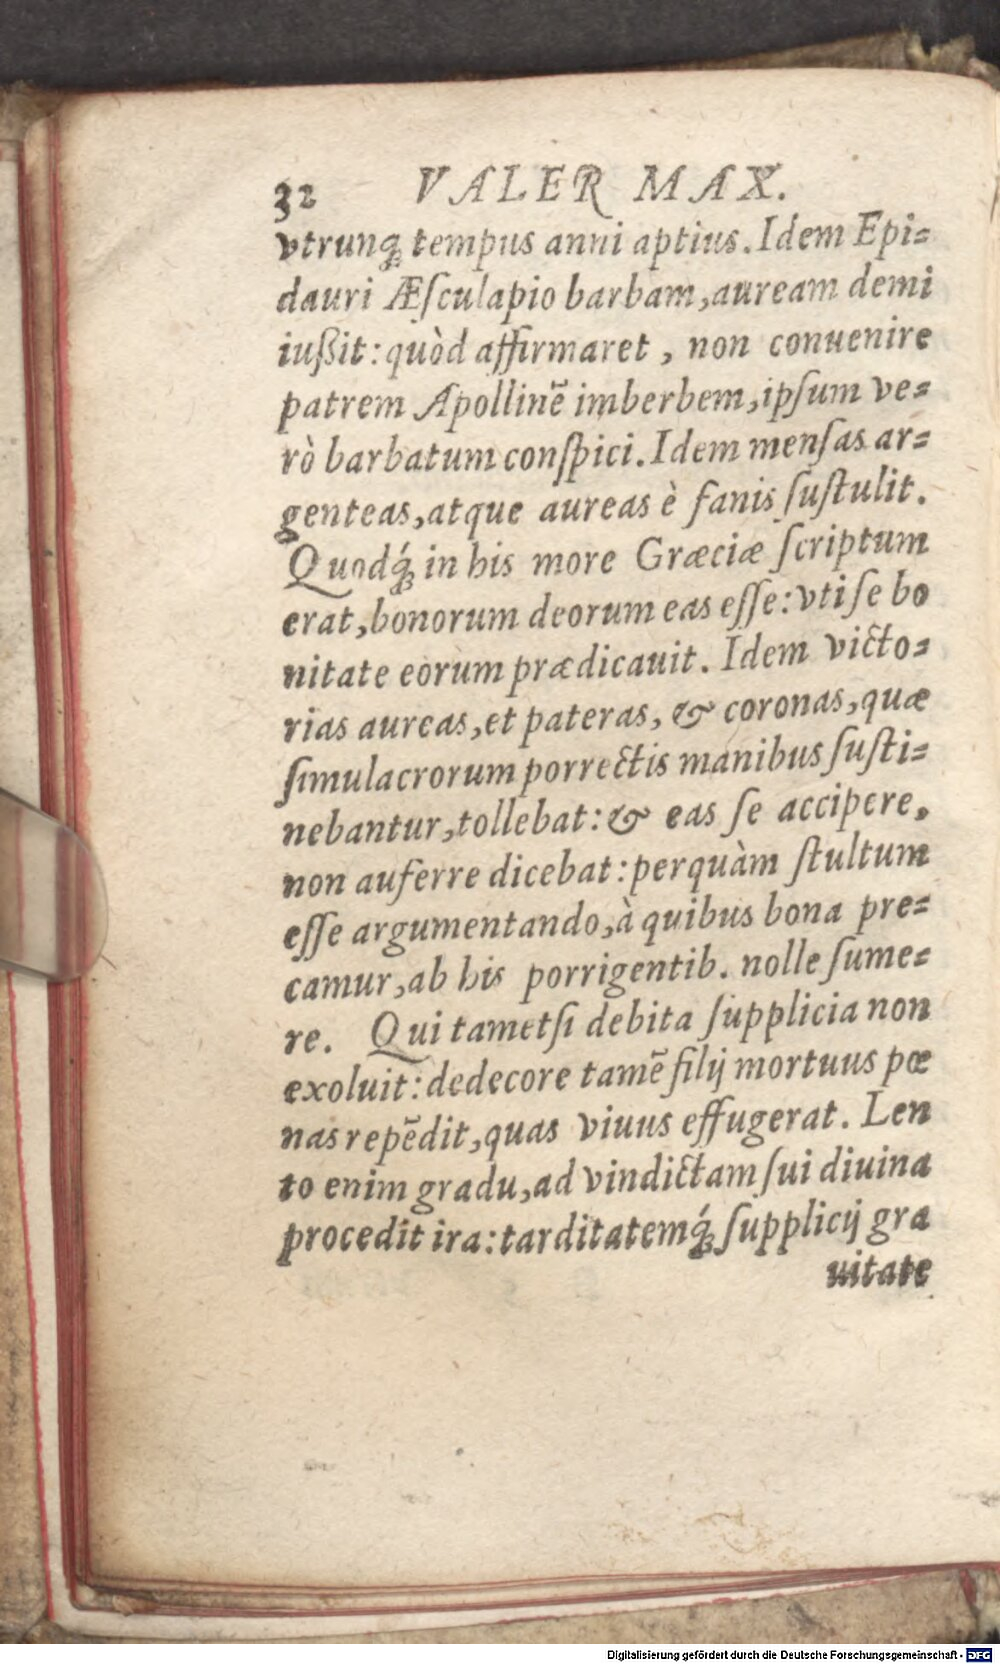 32 VALER MAX.
vtrunq́ꝫ tempus anni aptius. Idem Epi=
dauri Æſculapio barbam, auream demi
iußit: quòd affirmaret, non conuenire
patrem Apollinē imberbem, ipſum ve=
rò barbatum conſpici. Idem menſas ar=
genteas, atque aureas è fanis ſuſtulit.
Quodq́ꝫ in his more Græciæ ſcriptum
erat, bonorum deorum eas eſſe: vti ſe bo
nitate eorum prædicauit. Idem victo=
rias aureas, et pateras, & coronas, quæ
ſimulacrorum porrectis manibus ſuſti=
nebantur, tollebat: & eas ſe accipere,
non auferre dicebat: perquàm ſtultum
eſſe argumentando, à quibus bona pre=
camur, ab his porrigentib. nolle ſume=
re. Qui tametſi debita ſupplicia non
exoluit: dedecore tamē filij mortuus pœ
nas repēdit, quas viuus effugerat. Len
to enim gradu, ad vindictam ſui diuina
procedit ira: tarditatemq́ꝫ ſupplicij gra
uitate
Digitalisierung gefördert durch die Deutsche Forschungsgemeinschaft - DFG